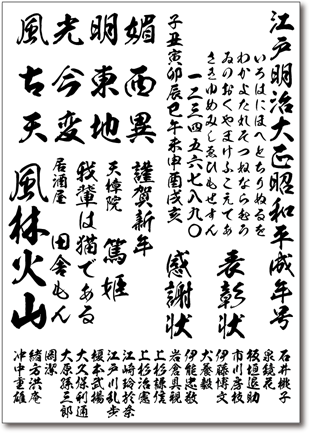 江戸明治大正昭和平成年号
いろはにほへとちりぬるを
わかよたれそつねならむうゐのおくやまけふこえてあ
さきゆめみしゑひもせすん
一二三四五六七八九〇
子丑寅卯辰巳午未申酉戌亥
表彰状
感謝状
媚西異
明東地
光今変
風古天
謹賀新年
天樟院 篤姫
我輩は猫である
居酒屋 田舎もん
風林火山
石井桃子
泉鏡花
板垣退助
市川房枝
伊藤博文
犬養毅
伊能忠敬
岩倉具視
上杉謙信
上杉治憲
江崎玲於奈
江戸川乱歩
榎本武揚
大久保利通
大原孫三郎
岡潔
緒方洪庵
沖中重雄